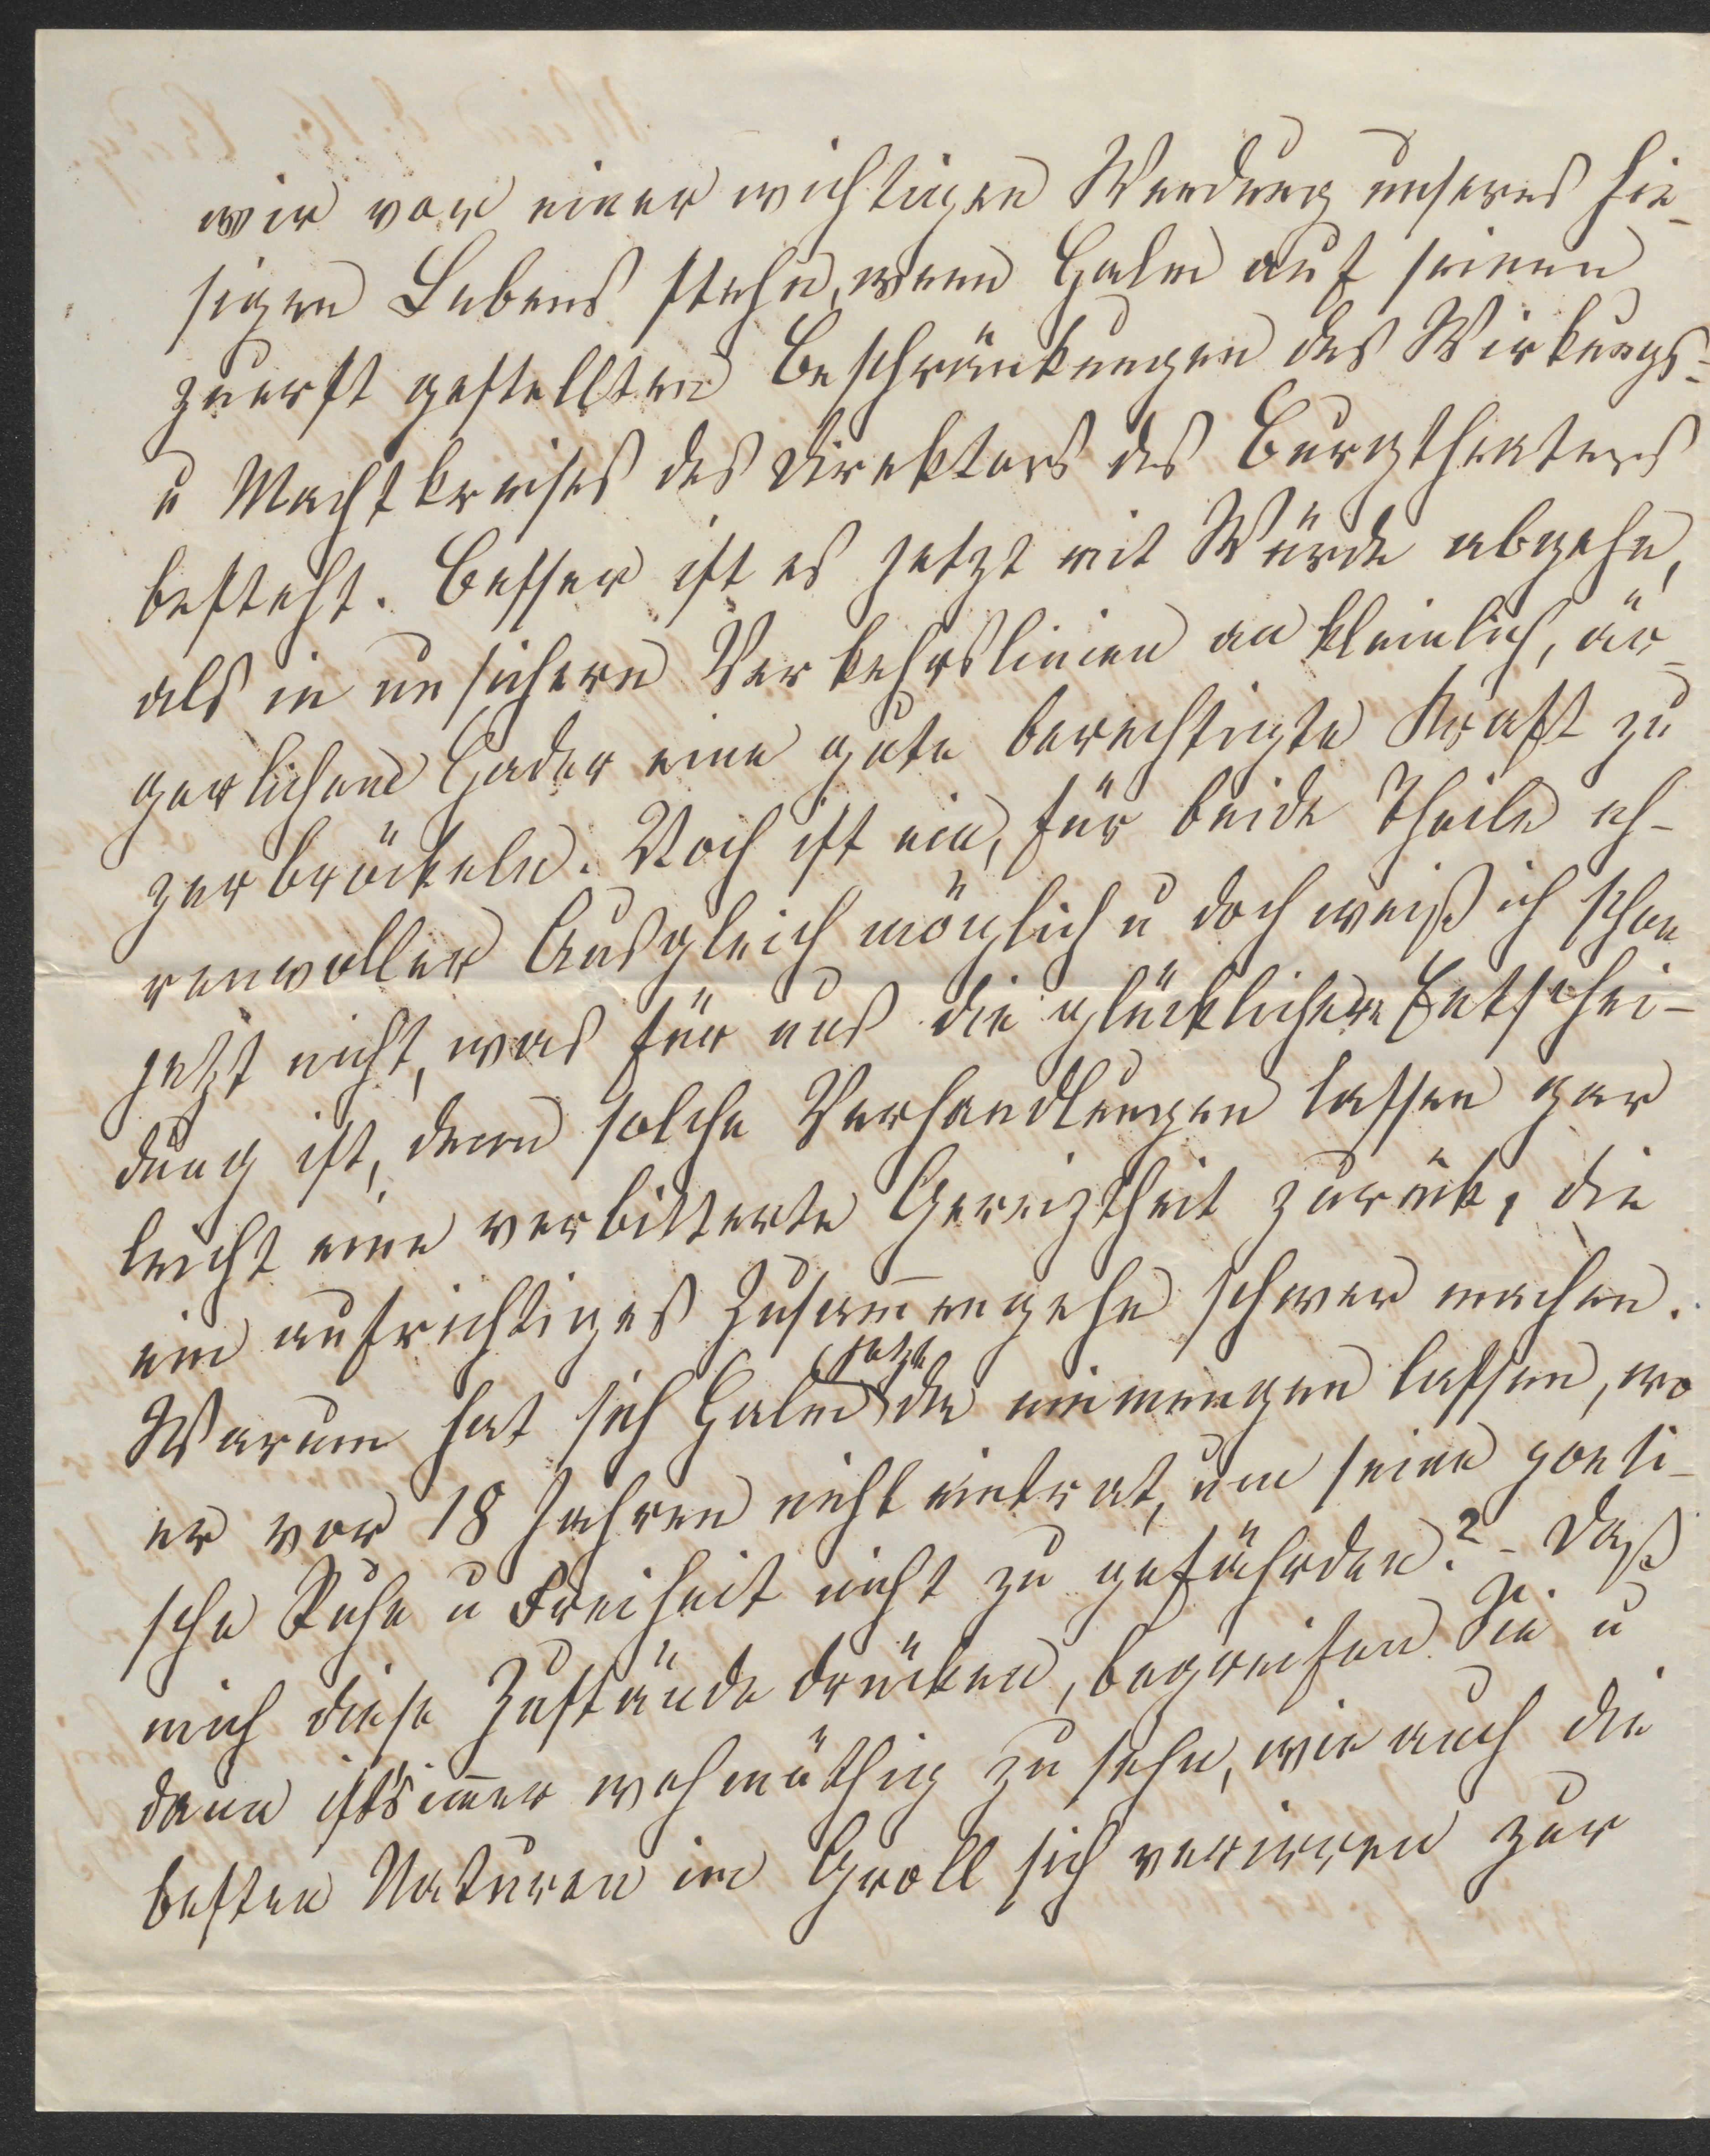 wir vor einer wichtigen Wendung unseres hie-
sigen Lebens stehn, wenn Halm auf seinen
zuerst gestellten Beschränkungen des Wirkungs-
u Machtkreises des Direktors des Burgtheaters
besteht. Besser ist es jetzt mit Würde abgehn,
als in unsichern Verkehrslinien an kleinlich, är-
gerlichem Hader eine gute berechtigte Kraft zu
zerbröckeln. Noch ist ein, für beide Theile eh-
renvoller Ausgleich möglich u doch weiß ich schon
jetzt nicht, was für uns die glücklichere Entschei-
dung ist, denn solche Verhandlungen lassen gar
leicht eine verbitterte Gereiztheit zurük, die
ein aufrichtiges Zusam̅engehn schwer machen.
Warum hat sich Halm jetzt da einmengen lassen, wo
er vor 18 Jahren nicht eintrat, um seine poeti-
sche Ruhe u Freiheit nicht zu gefährden? - Daß
mich diese Zustände drücken, begreifen Sie u
dann ist's im̅er wehmüthig zu sehn, wie auch die
besten Naturen im Groll sich verirren zur